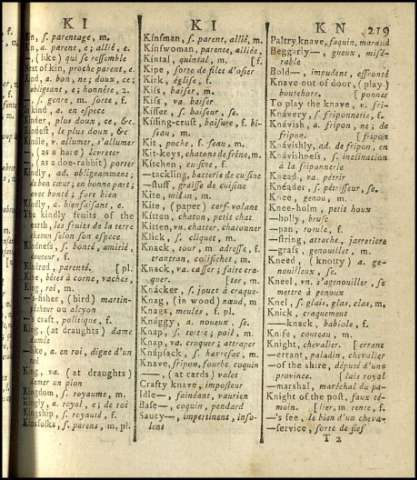 KI
KI
KN
219
Kin, s. parentage, m.
Kin, a. parent, e; allié, e.
—, (like) qui se ressemble
Next of kin, proche parent, e.
Kind, a. bon, ne; doux, ce;
obligeant, e; honnête, 2.
—, s. genre, m. sorte, f.
kind, a. en espece
Kinder, plus doux, ce, &c.
Kindest, le plus doux, &c.
Kindle, v. allumer, s'allumer
—, (as a hare) levreter
—, (as a doe-rabbit) porter
Kindly, ad. obligeamment;
de bon cœur; en bonne part;
avec bonté; fort bien
Kindly, a. bienfaisant, e.
The kindly fruits of the
earth, les fruits de la terre
chacun selon son espece
Kindness, s. bonté, amitié,
douceur, f.
Kindred, parenté. [pl.
Kine, bêtes à corne, vaches,
King, roi, m.
—'s-fisher, (bird) martin-
pêcheur ou alcyon
—craft, politique, f.
King, (at draughts) dame
damée
—like, a. en roi, digne d'un
roi
King, va. (at draughts)
damer un pion
Kingdom, s. royaume, m.
Kingly, a. royal, e; de roi
Kingship, s. royauté, f.
Kinsfolks, s. parens, m. pl.
Kinsman, s. parent, allié, m.
Kinswoman, parente, alliée,
Kintal, quintal, m. [f.
Kipe, sorte de filet d'osier
Kirk, église, f.
Kiss, baiser, m.
Kiss, va. baiser
Kisser, s. baiseur, se.
Kissing-crust, baisure, f. bi-
seau, m.
Kit, poche, f. seau, m.
Kit-keys, chatons de frêne, m.
Kitchen, cuisine, f.
—tackling, batterie de cuisine
—stuff, graisse de cuisine
Kite, milan, m.
Kite, (paper) cerf-volant
Kitten, chaton, petit chat
Kitten, vn. chatter, chatonner
Klick, s. cliquet, m.
Knack, tour, m. adresse, f.
brimborion, colifichet, m.
Knack, va. casser; faire cra-
quer [ter, m.
Knacker, s. jouet à craque-
Knag, (in wood) nœud, m
Knags, meules, f. pl.
Knaggy, a. noueux, se.
Knap, s. tertre; poil, m.
Knap, va. croquer; attraper
Knapsack, s. havresac, m.
Knave, fripon, fourbe, coquin
—, (at cards) valet
Crafty knave, imposteur
Idle—, fainéant, vaurien
Base—, coquin, pendard
Saucy—, impertinent, inso-
lent
Paltry knave, faquin, maraud
Beggarly—, gueux, misé-
rable
Bold—, impudent, effronté
Knave out of door, (play)
boutehors. [ponner
To play the knave, v. fri-
Knavery, s. friponnerie, f.
Knavish, a. fripon, ne; de
fripon. [fripon
Knavishly, ad. de fripon, en
Knavishness, s. inclination
à la friponnerie
Knead, va. pétrir
Kneader, s. pétrisseur, se.
Knee, genou, m.
Knee-holm, petit houx
—holly, brusc
—pan, rotule, f.
—string, attache, jarretiere
—grass, genouillet, m.
Kneed, (knotty) a. ge-
nouilleux, se.
Kneel, vn. s'agenouiller, se
mettre à genoux
Knel, s. glais, glas, clas, m,
Knick, craquement
—knack, babiole, f.
Knife, couteau, m.
Knight, chevalier. [errant
—errant, paladin, chevalier
—of the shire, député d'une
province. [du roi
—marshal, maréchal du pa-
Knight of the post, faux té-
moin. [lier, m. rente, f.
—'s fee, le bien d'un cheva-
—service, sorte de fief
T 2